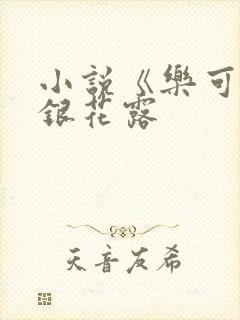 小説《樂可
銀花露
天音友希